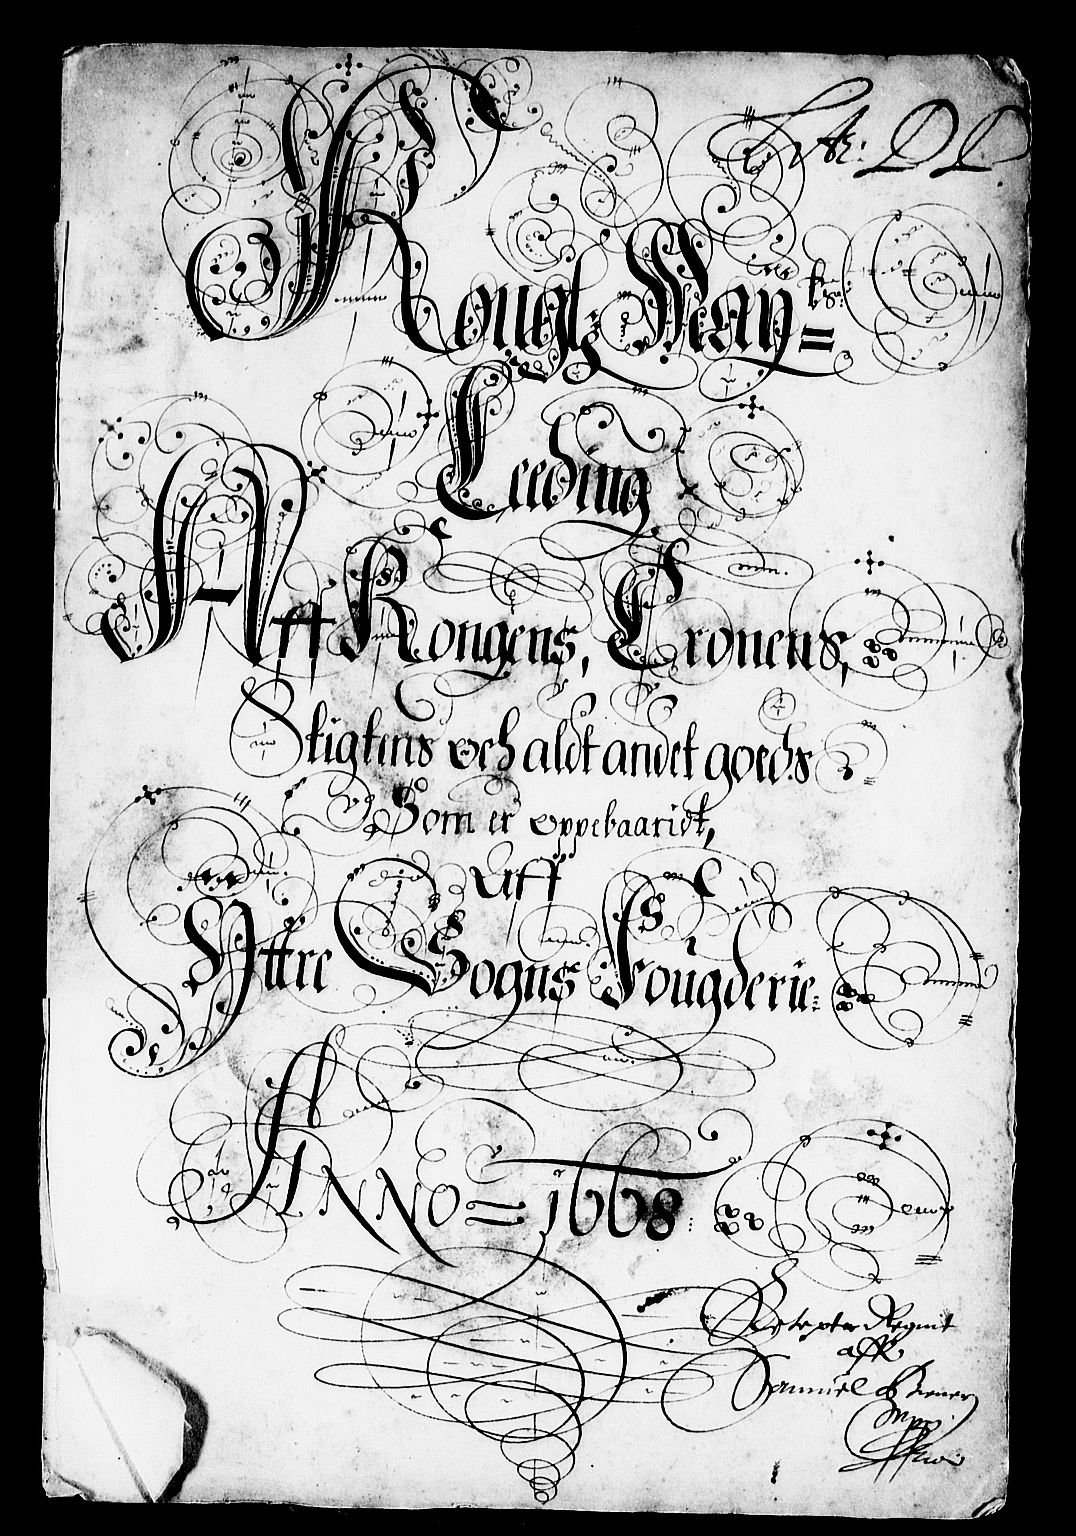 Lit: DD.
Konglz May:
Leeding
Aff Kongens, Cronens,
Stigtens och aldt andet goeds
Som er oppebaaridt,
Aff
Yttre Sogns Fougderie:
ANNO = 1668:
aff
Samuel